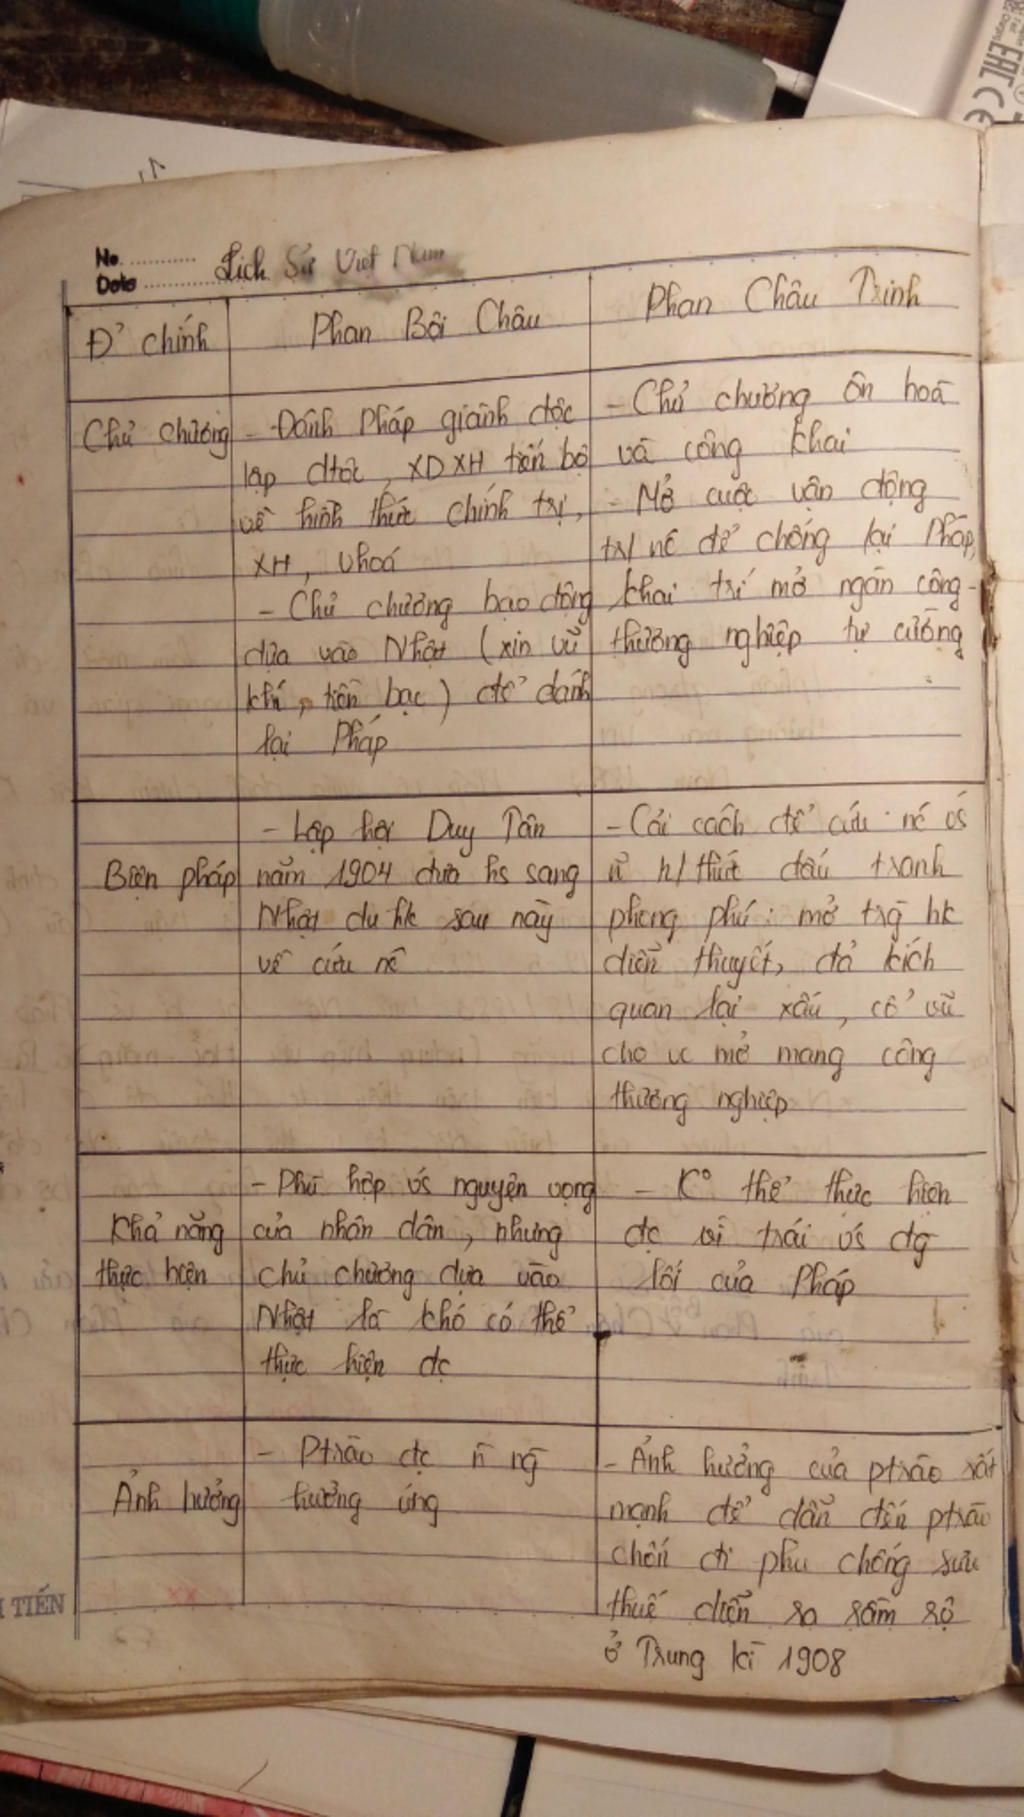 No. ............
Date ............
Lịch Sử Việt Nam
Đ² chính
Phan Bội Châu
Phan Châu Trinh
Chủ chương
- Đánh Pháp giành độc
lập dtộc, XDXH tiến bộ
về hình thức chính trị,
XH, vhoá
- Chủ chương bạo động
dựa vào Nhật (xin vũ
khí, tiền bạc) để đánh
lại Pháp
- Chủ chương ôn hoà
và công khai
- Mở cuộc vận động
để chống lại Pháp,
khai trí mở ngàn công-
thương nghiệp tự cường
Biện pháp
- Lập hội Duy Tân
năm 1904 đưa hs sang
Nhật du hk sau này
về cứu nc
- Cải cách để cứu nc vs
n̄ h/thức đấu tranh
phong phú: mở trg̀ hk
diễn thuyết, đả kích
quan lại xấu, cổ vũ
cho vc mở mang công
thương nghiệp
Khả năng
thực hiện
- Phù hợp vs nguyện vọng
của nhân dân, nhưng
chủ chương dựa vào
Nhật là khó có thể
thực hiện đc
- K° thể thực hiện
đc vì trái vs đg̀
lối của Pháp
Ảnh hưởng
- Ptrào đc n̄ ng̀
hưởng ứng
- Ảnh hưởng của ptrào rất
mạnh để dẫn đến ptrào
chốn đi phu chống sưu
thuế diễn ra rầm rộ
ở Trung kì 1908
TIẾN
EAC
CE